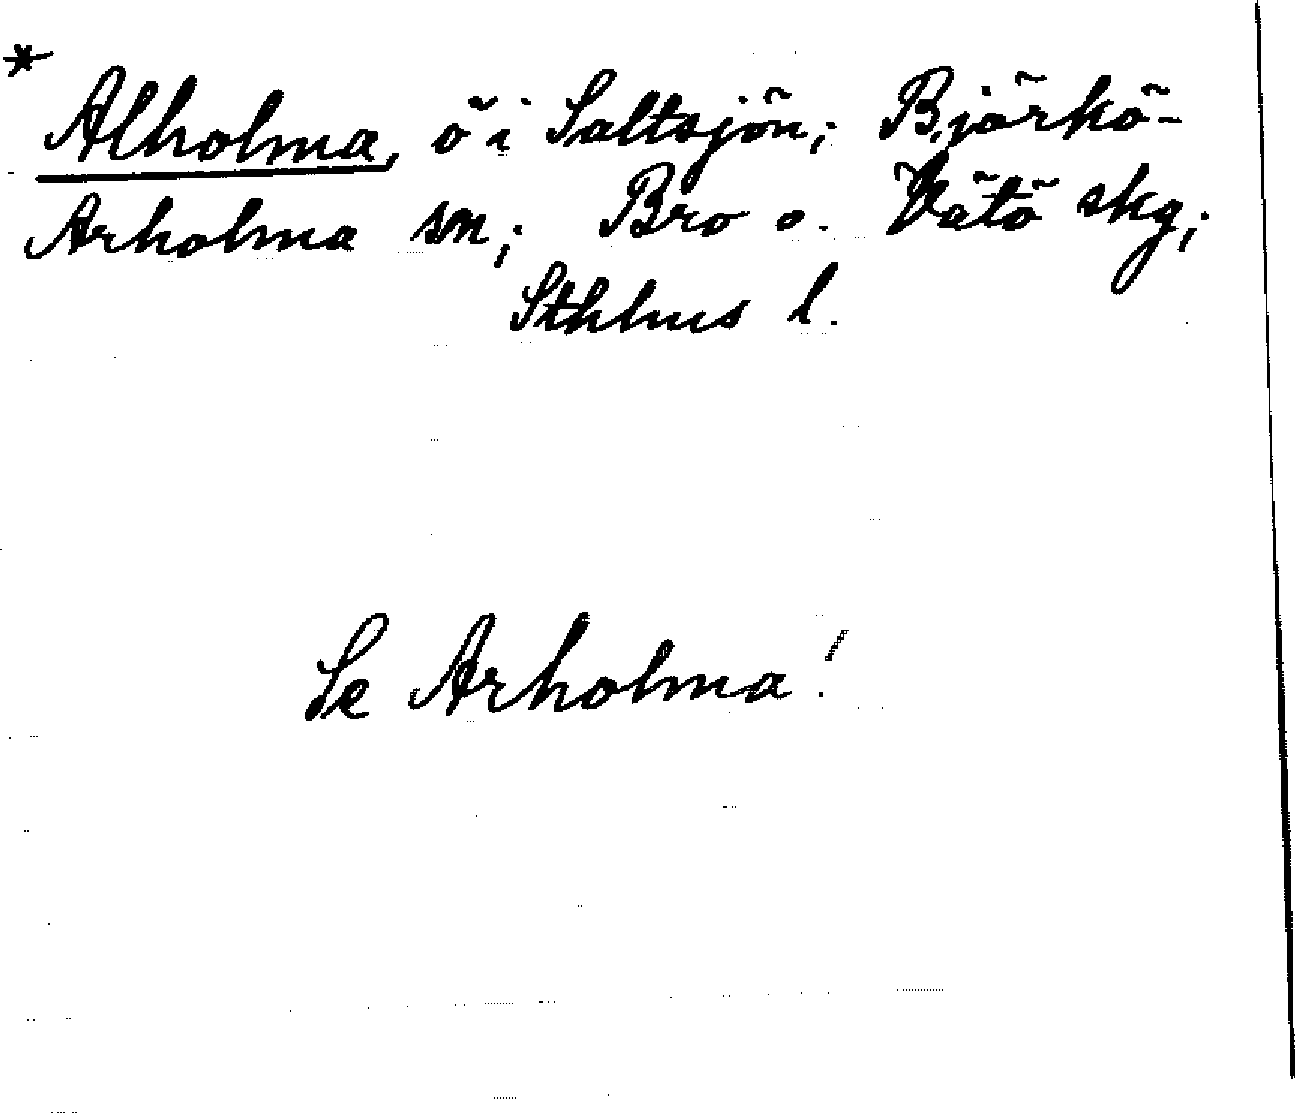 * Alholma, ö i Saltsjön; Björkö-
Arholma sn; Bro o. Vätö skg;
Sthlms l.
Se Arholma!